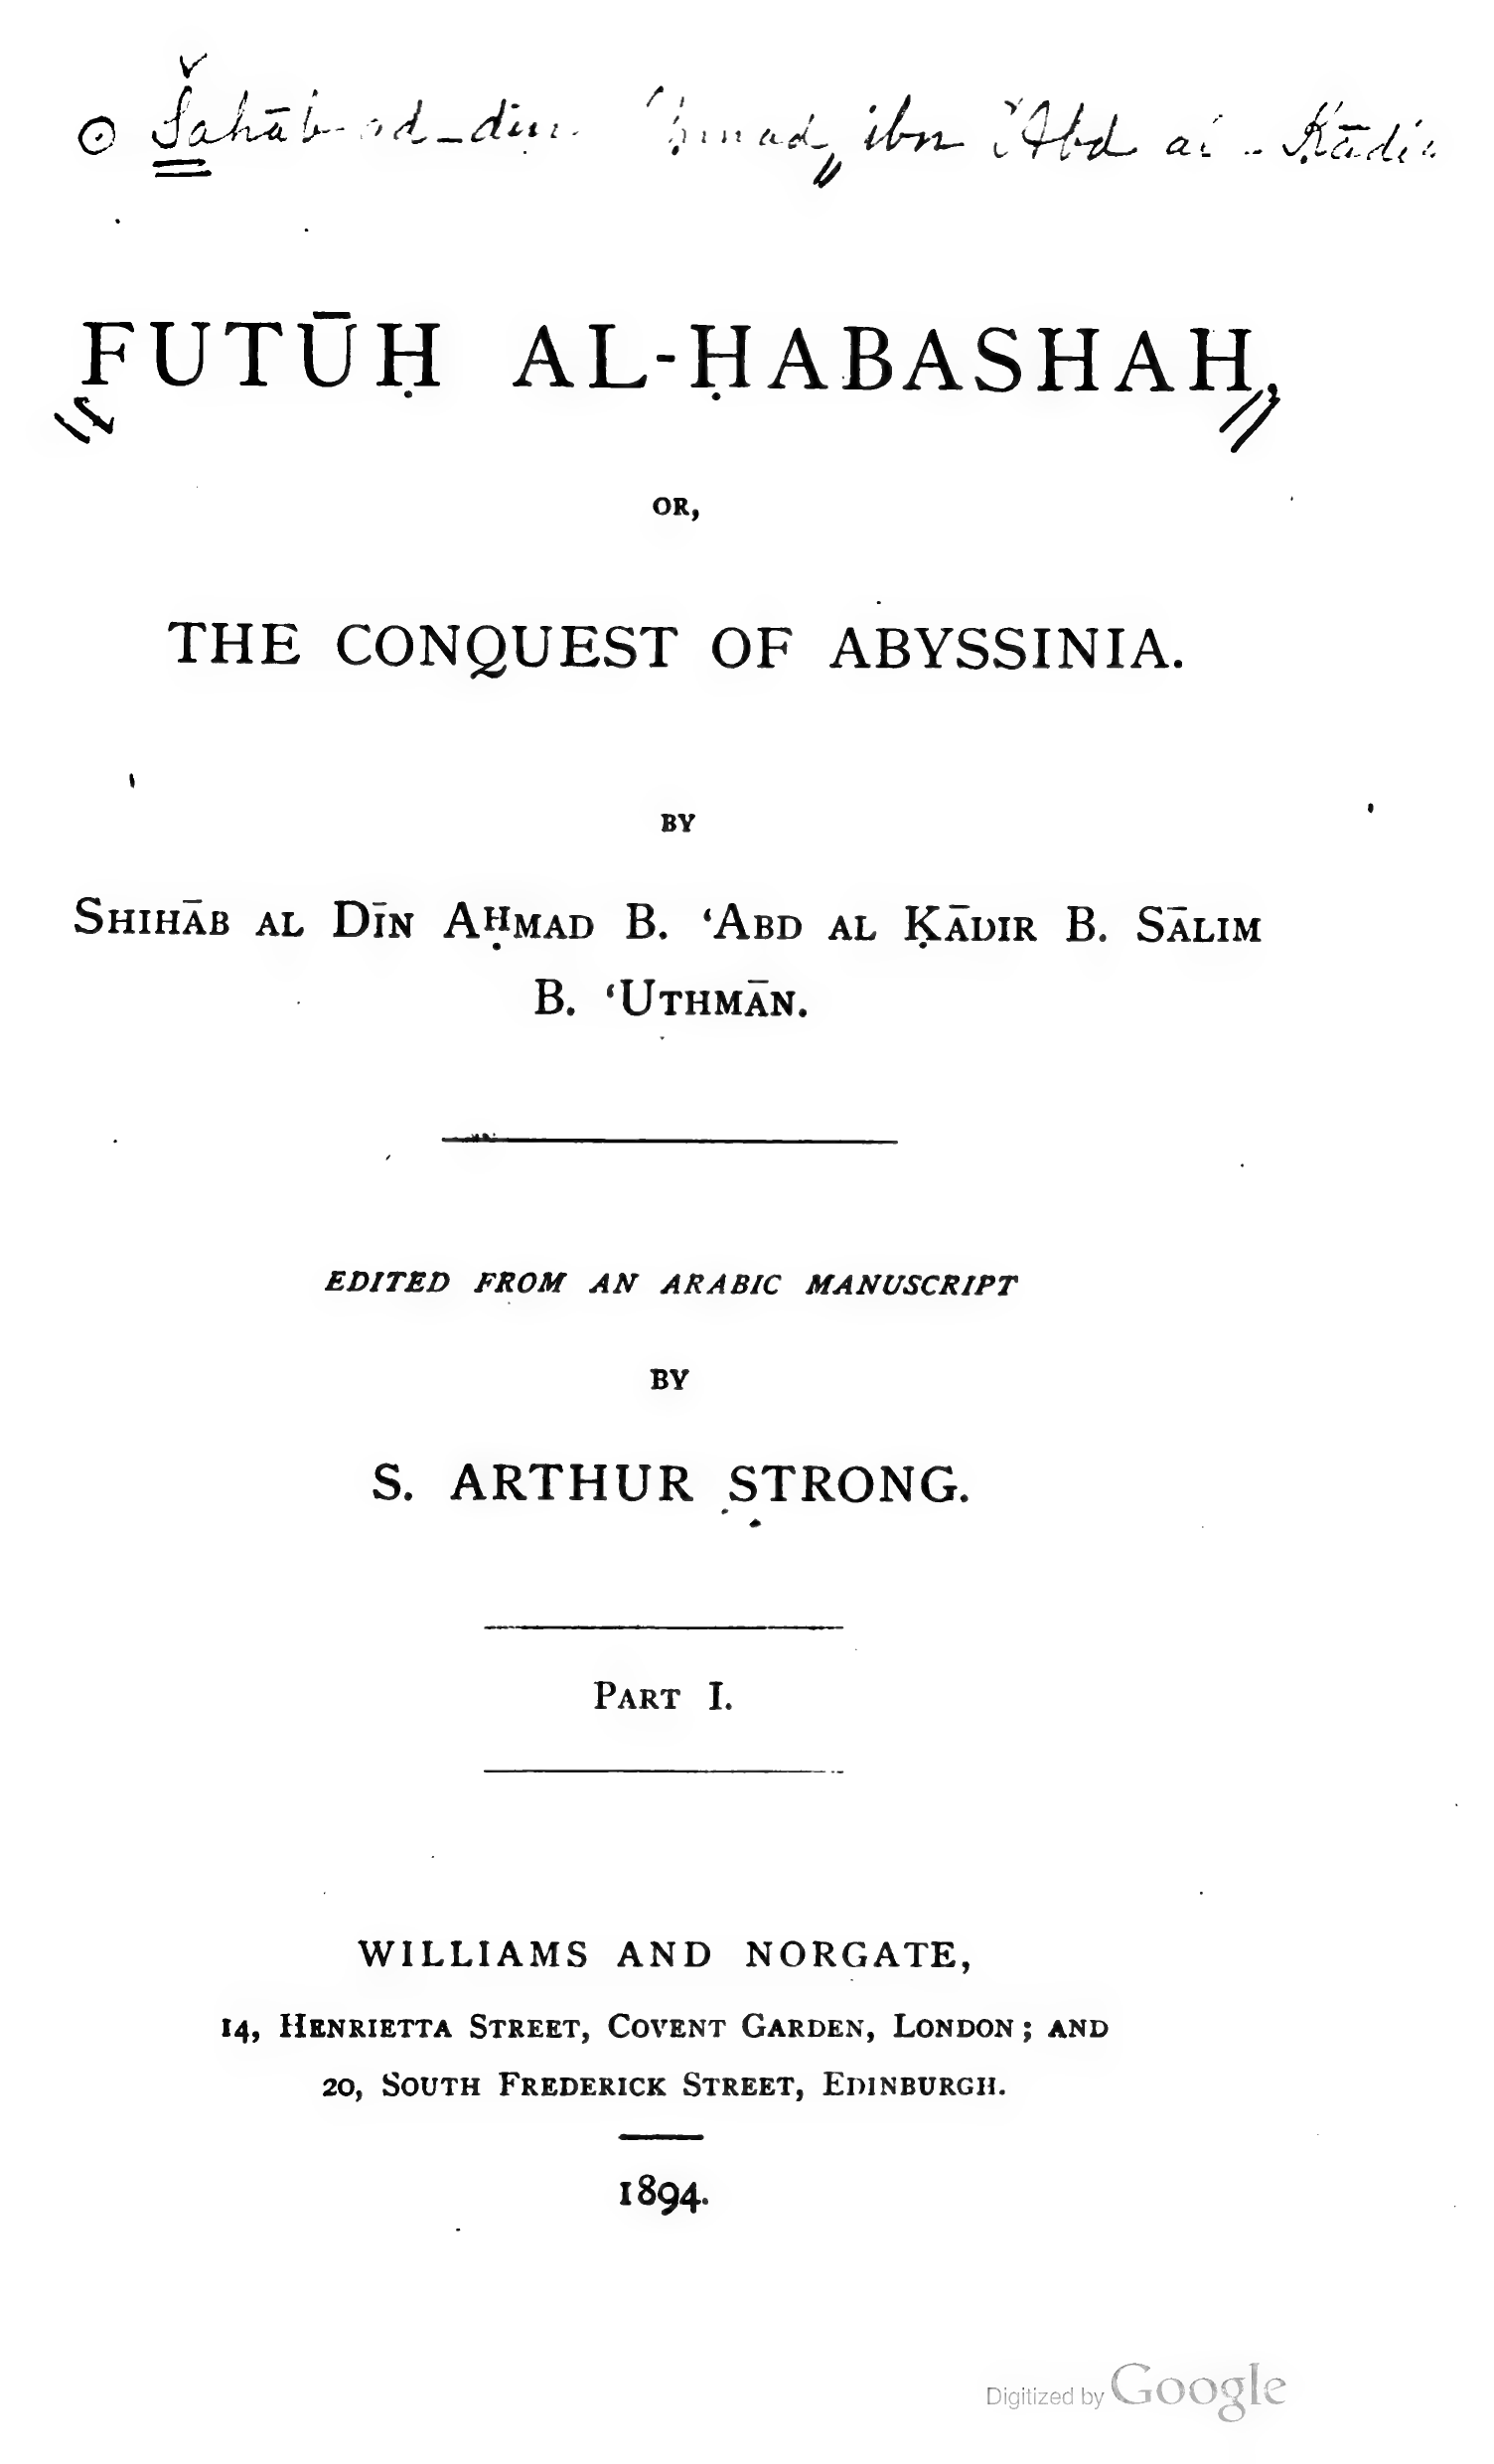 Šahāb ad-dīn Aḥmad, ibn 'Abd al-Ḳādir
FUTŪḤ AL-ḤABASHAH,
OR,
THE CONQUEST OF ABYSSINIA.
BY
SHIHĀB AL DĪN AḤMAD B. ‘ABD AL ḲĀDIR B. SĀLIM
B. ‘UTHMĀN.
EDITED FROM AN ARABIC MANUSCRIPT
BY
S. ARTHUR STRONG.
PART I.
WILLIAMS AND NORGATE,
14, HENRIETTA STREET, COVENT GARDEN, LONDON; AND
20, SOUTH FREDERICK STREET, EDINBURGH.
1894.
Digitized by Google